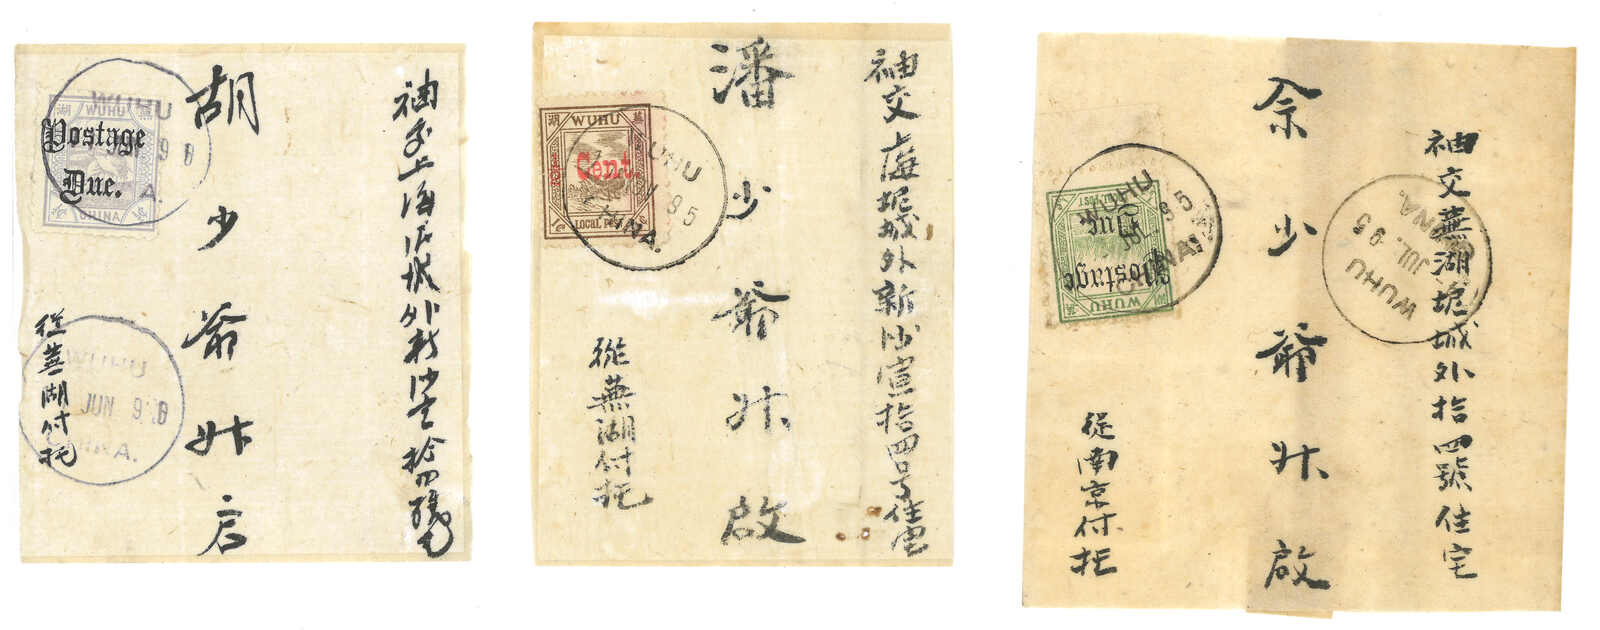 袖交上海泥城外新沙宣拾四號宅
胡少爺升启
從蕪湖付托
湖 WUHU 蕪
Postage
Due.
CHINA
WUHU
CHINA.
WUHU
JUN 9
CHINA.
袖交滬坭城外新沙宣拾四号住宅
潘少爺升啟
從蕪湖付托
湖 WUHU 蕪
Cent.
LOCAL
WUHU
95
CHINA.
袖交蕪湖坭城外拾四號住宅
少爺升啟
從南京付托
WUHU
Postage
Due
POST
WUHU
JUL. 95
CHINA.
WUHU
JUL. 95
CHINA.